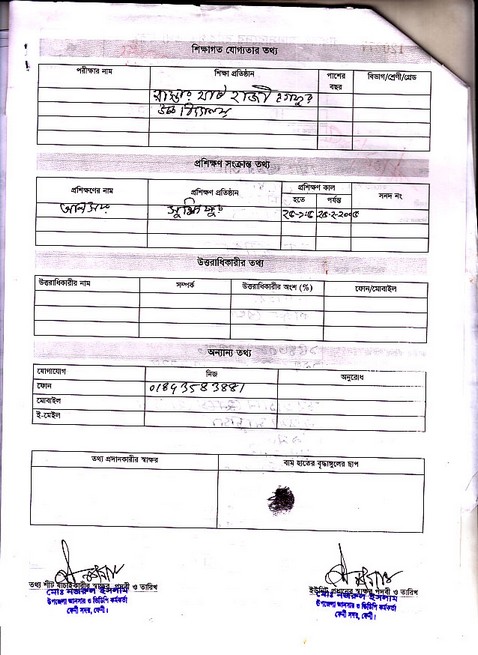 শিক্ষাগত যোগ্যতার তথ্য
পরীক্ষার নাম শিক্ষা প্রতিষ্ঠান পাশের বছর বিভাগ/শ্রেণী/গ্রেড
হাজী
উচ্চ বিদ্যালয়
প্রশিক্ষণ সংক্রান্ত তথ্য
প্রশিক্ষণের নাম প্রশিক্ষণ প্রতিষ্ঠান প্রশিক্ষণ কাল সনদ নং
হতে পর্যন্ত
উত্তরাধিকারীর তথ্য
উত্তরাধিকারীর নাম সম্পর্ক উত্তরাধিকারীর অংশ (%) ফোন/মোবাইল
অন্যান্য তথ্য
যোগাযোগ নিজ অনুরোধ
ফোন 01893583881
মোবাইল
ই-মেইল
তথ্য প্রদানকারীর স্বাক্ষর বাম হাতের বৃদ্ধাঙ্গুলের ছাপ
তথ্য শীট যাচাইকারীর স্বাক্ষর, পদবী ও তারিখ
মোঃ নজরুল ইসলাম
উপজেলা আনসার ও ভিডিপি কর্মকর্তা
ফেনী সদর, ফেনী।
ইউনিট প্রধানের স্বাক্ষর, পদবী ও তারিখ
মোঃ নজরুল ইসলাম
উপজেলা আনসার ও ভিডিপি কর্মকর্তা
ফেনী সদর, ফেনী।